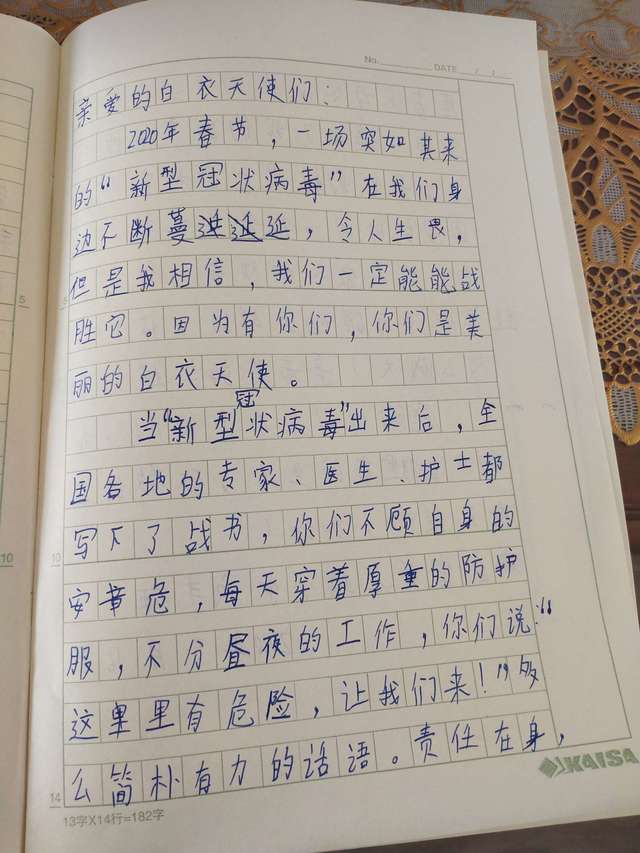 No. DATE / /
亲爱的白衣天使们：
2020年春节，一场突如其来
的“新型冠状病毒”在我们身
边不断蔓延，令人生畏，
但是我相信，我们一定能能战
胜它。因为有你们，你们是美
丽的白衣天使。
当“新型冠状病毒”出来后，全
国各地的专家、医生、护士都
写下了战书，你们不顾自身的
安章危，每天穿着厚重的防护
服，不分昼夜的工作，你们说：“
这里里有危险，让我们来！”多
么简朴有力的话语。责任在身，
5
5
10
10
14
13字X14行=182字
KAISA